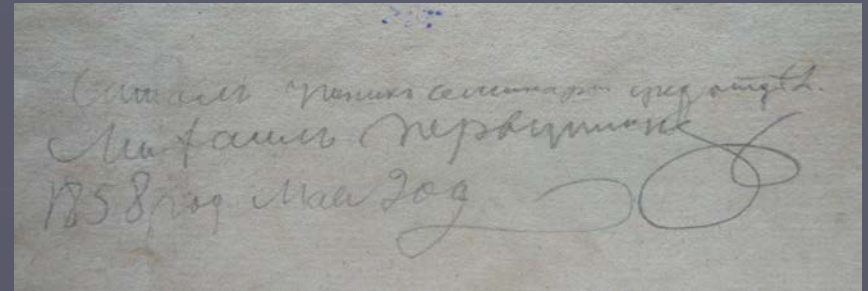 Читалъ ученикъ семинаріи сред. отдѣл.
Михаилъ Первушинъ
1858 год Мая 20 д